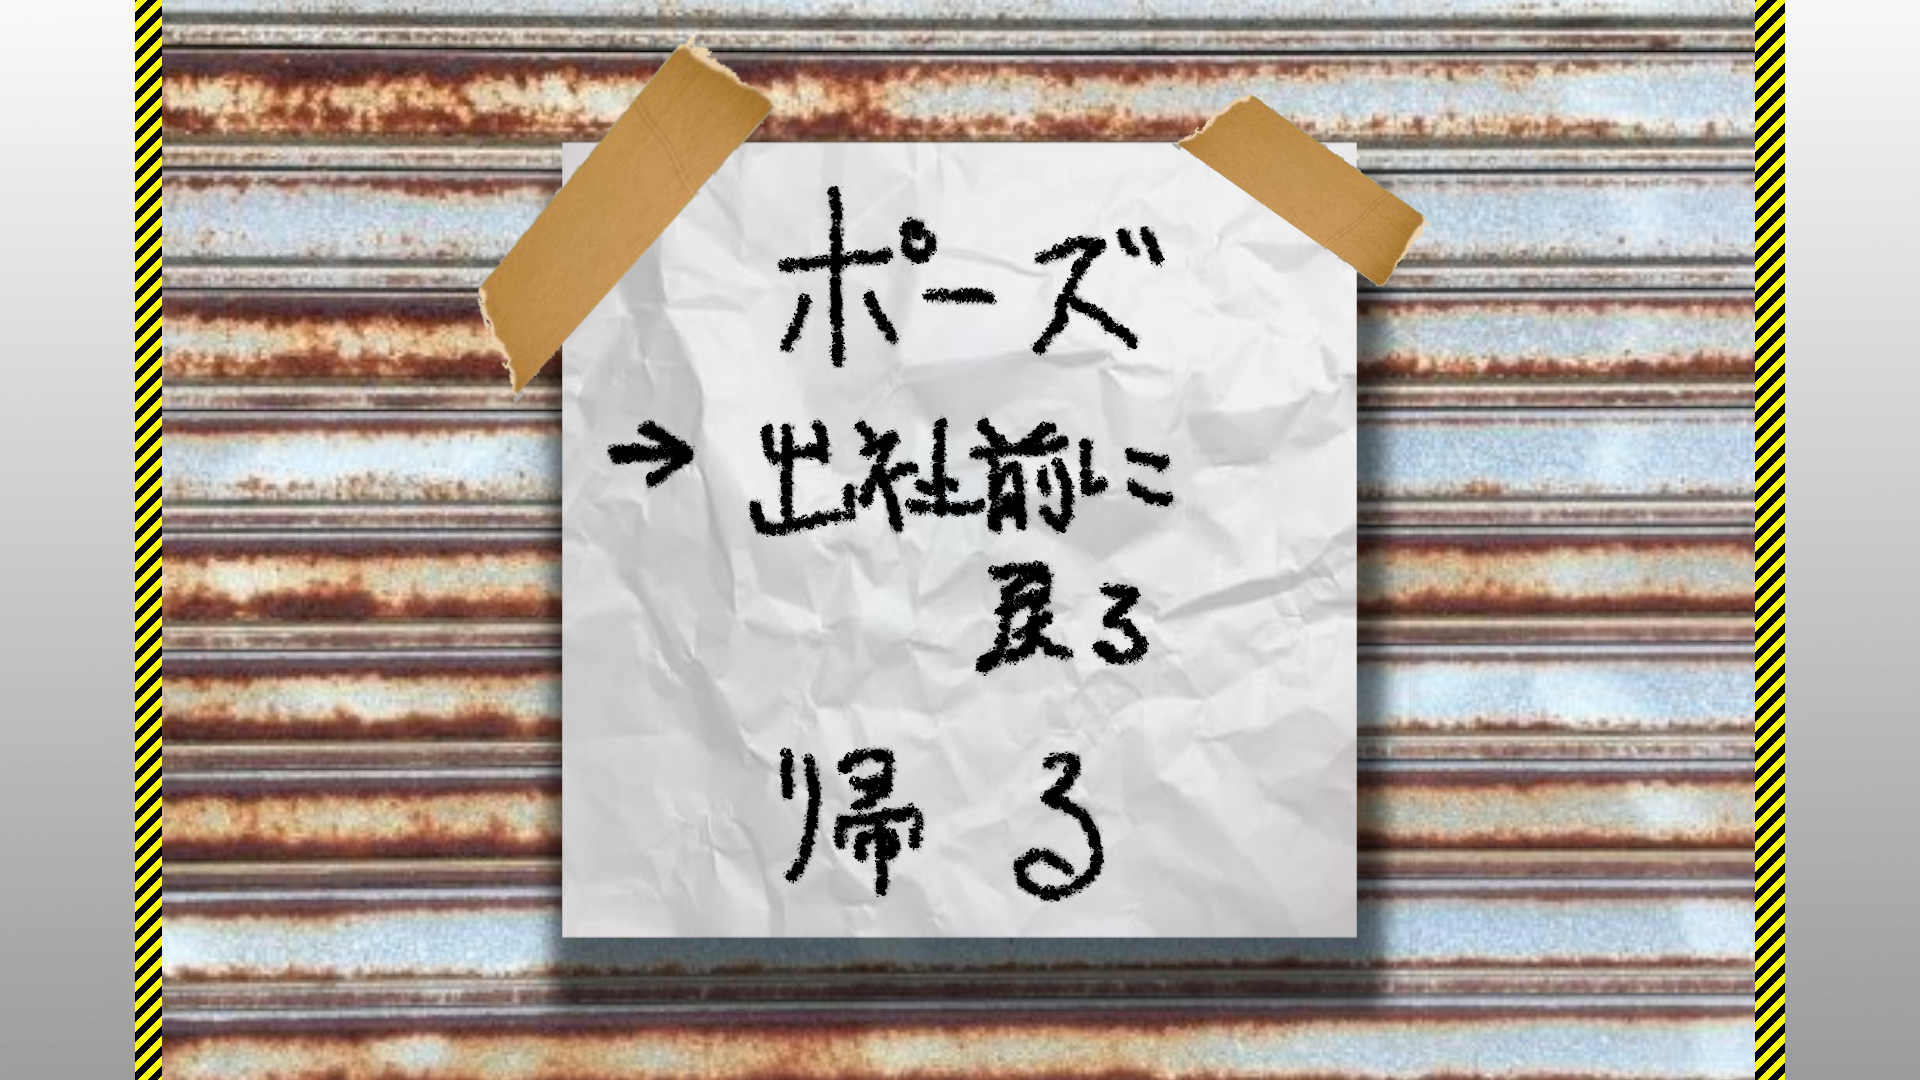 ポーズ
→ 出社前に
戻る
帰る